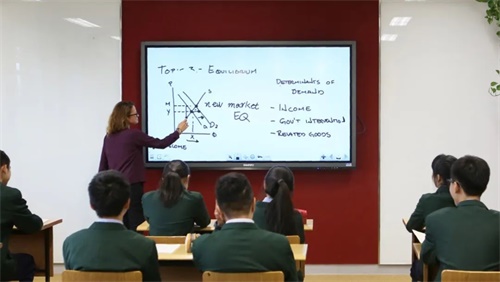 Topic 2 - EQUILIBRIUM
DETERMINANTS OF
DEMAND
P
S
M
Y
new market
EQ
- INCOME
- GOV'T INTERVENTION
- RELATED GOODS
D
D2
Q
X
INCOME